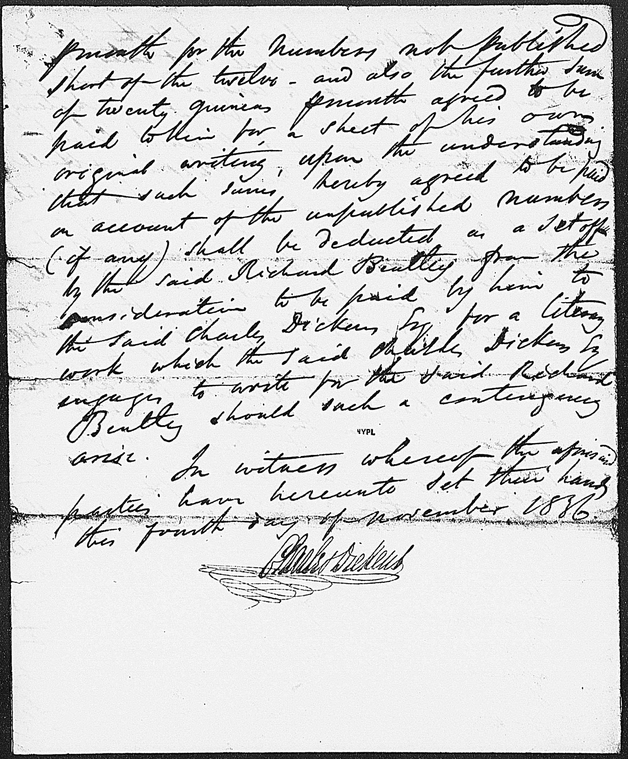 pmonth for the Numbers not published
short of the twelve - and also the further sum
of twenty guineas pmonth agreed to be
paid to him for a sheet of his own
original writing, upon the understanding
that such sums hereby agreed to be paid
on account of the unpublished numbers
(if any) shall be deducted as a Set off
by the said Richard Bentley from the
consideration to be paid by him to
the said Charles Dickens Esq for a literary
work which the said Charles Dickens Esq
engages to write for the said Richard
Bentley should such a contingency
arise.
In witness whereof the aforesaid
parties have hereunto set their hands
this fourth day of November 1836.
Charles Dickens
NYPL